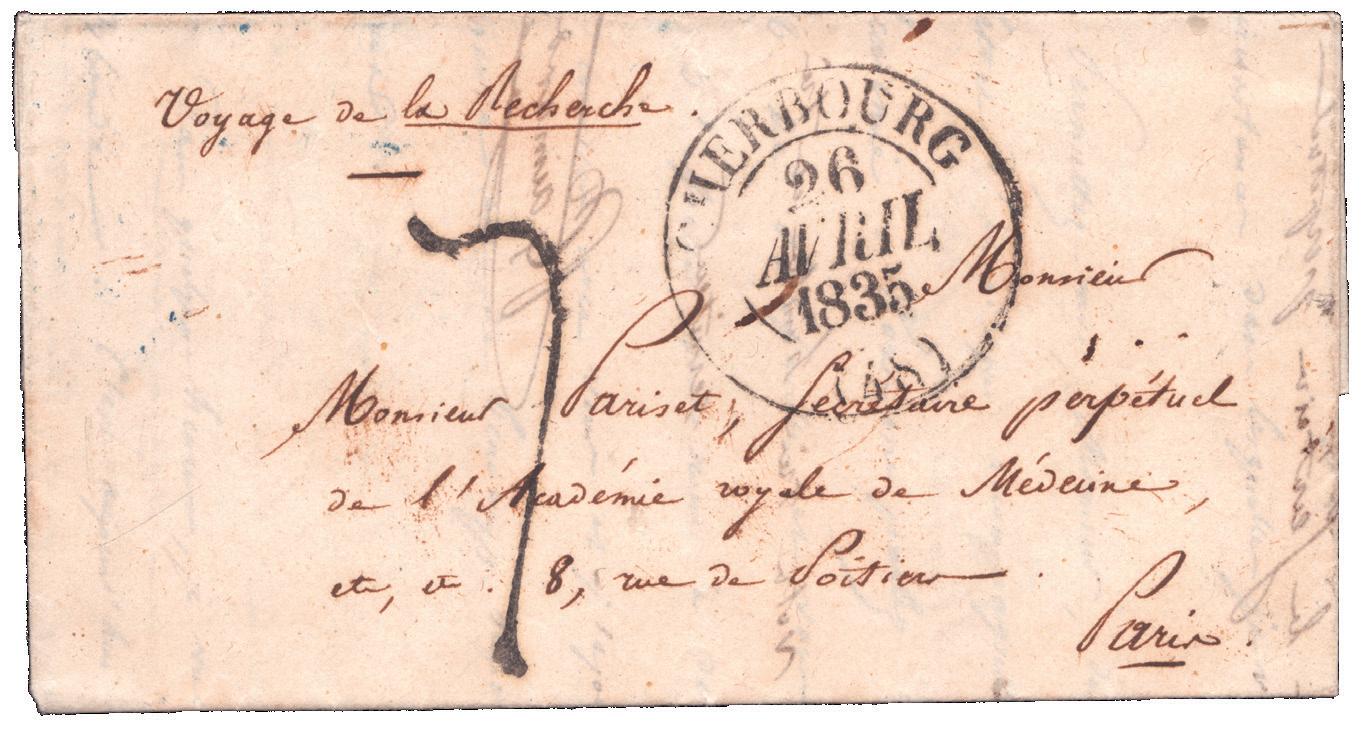 Voyage de la Recherche.
CHERBOURG
26
AVRIL
1835
(48)
7
Monsieur
Monsieur Pariset, Secrétaire perpétuel
de l'Académie royale de Médecine,
etc, etc. 8, rue de Poitiers.
Paris.